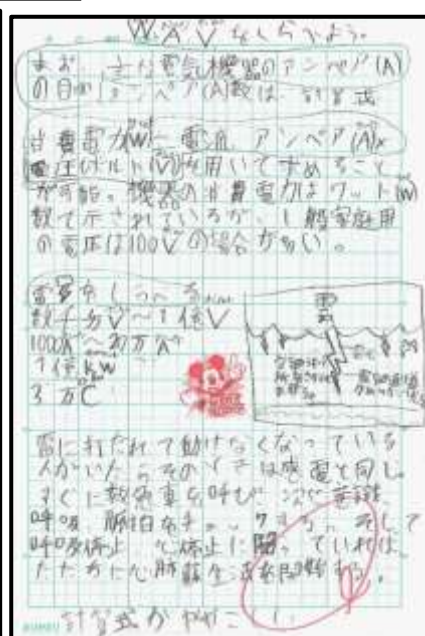 W A V をしらべよう。
主な電気機器のアンペア(A)
の目
ンペア(A)数は、計算式
消費電力(W)=電流 アンペア(A)×
電圧ボルト(V)を用いて求めること
が可能。機器の消費電力はワット(W)
数で示されているが、1般家庭用
の電圧は100Vの場合が多い。
雷をしらべる
数千万V~1億V
1000A~20万A
1億kW
3万℃
雷
雷に打たれて動けなくなっている
人がいたらその
は感電と同じ
すぐに救急車を呼び
次に意識
呼吸、脈拍をチェックする。そして
呼吸停止 心停止に陥っていれば
ただちに心肺蘇生法を開始する。
計算式がややこしい